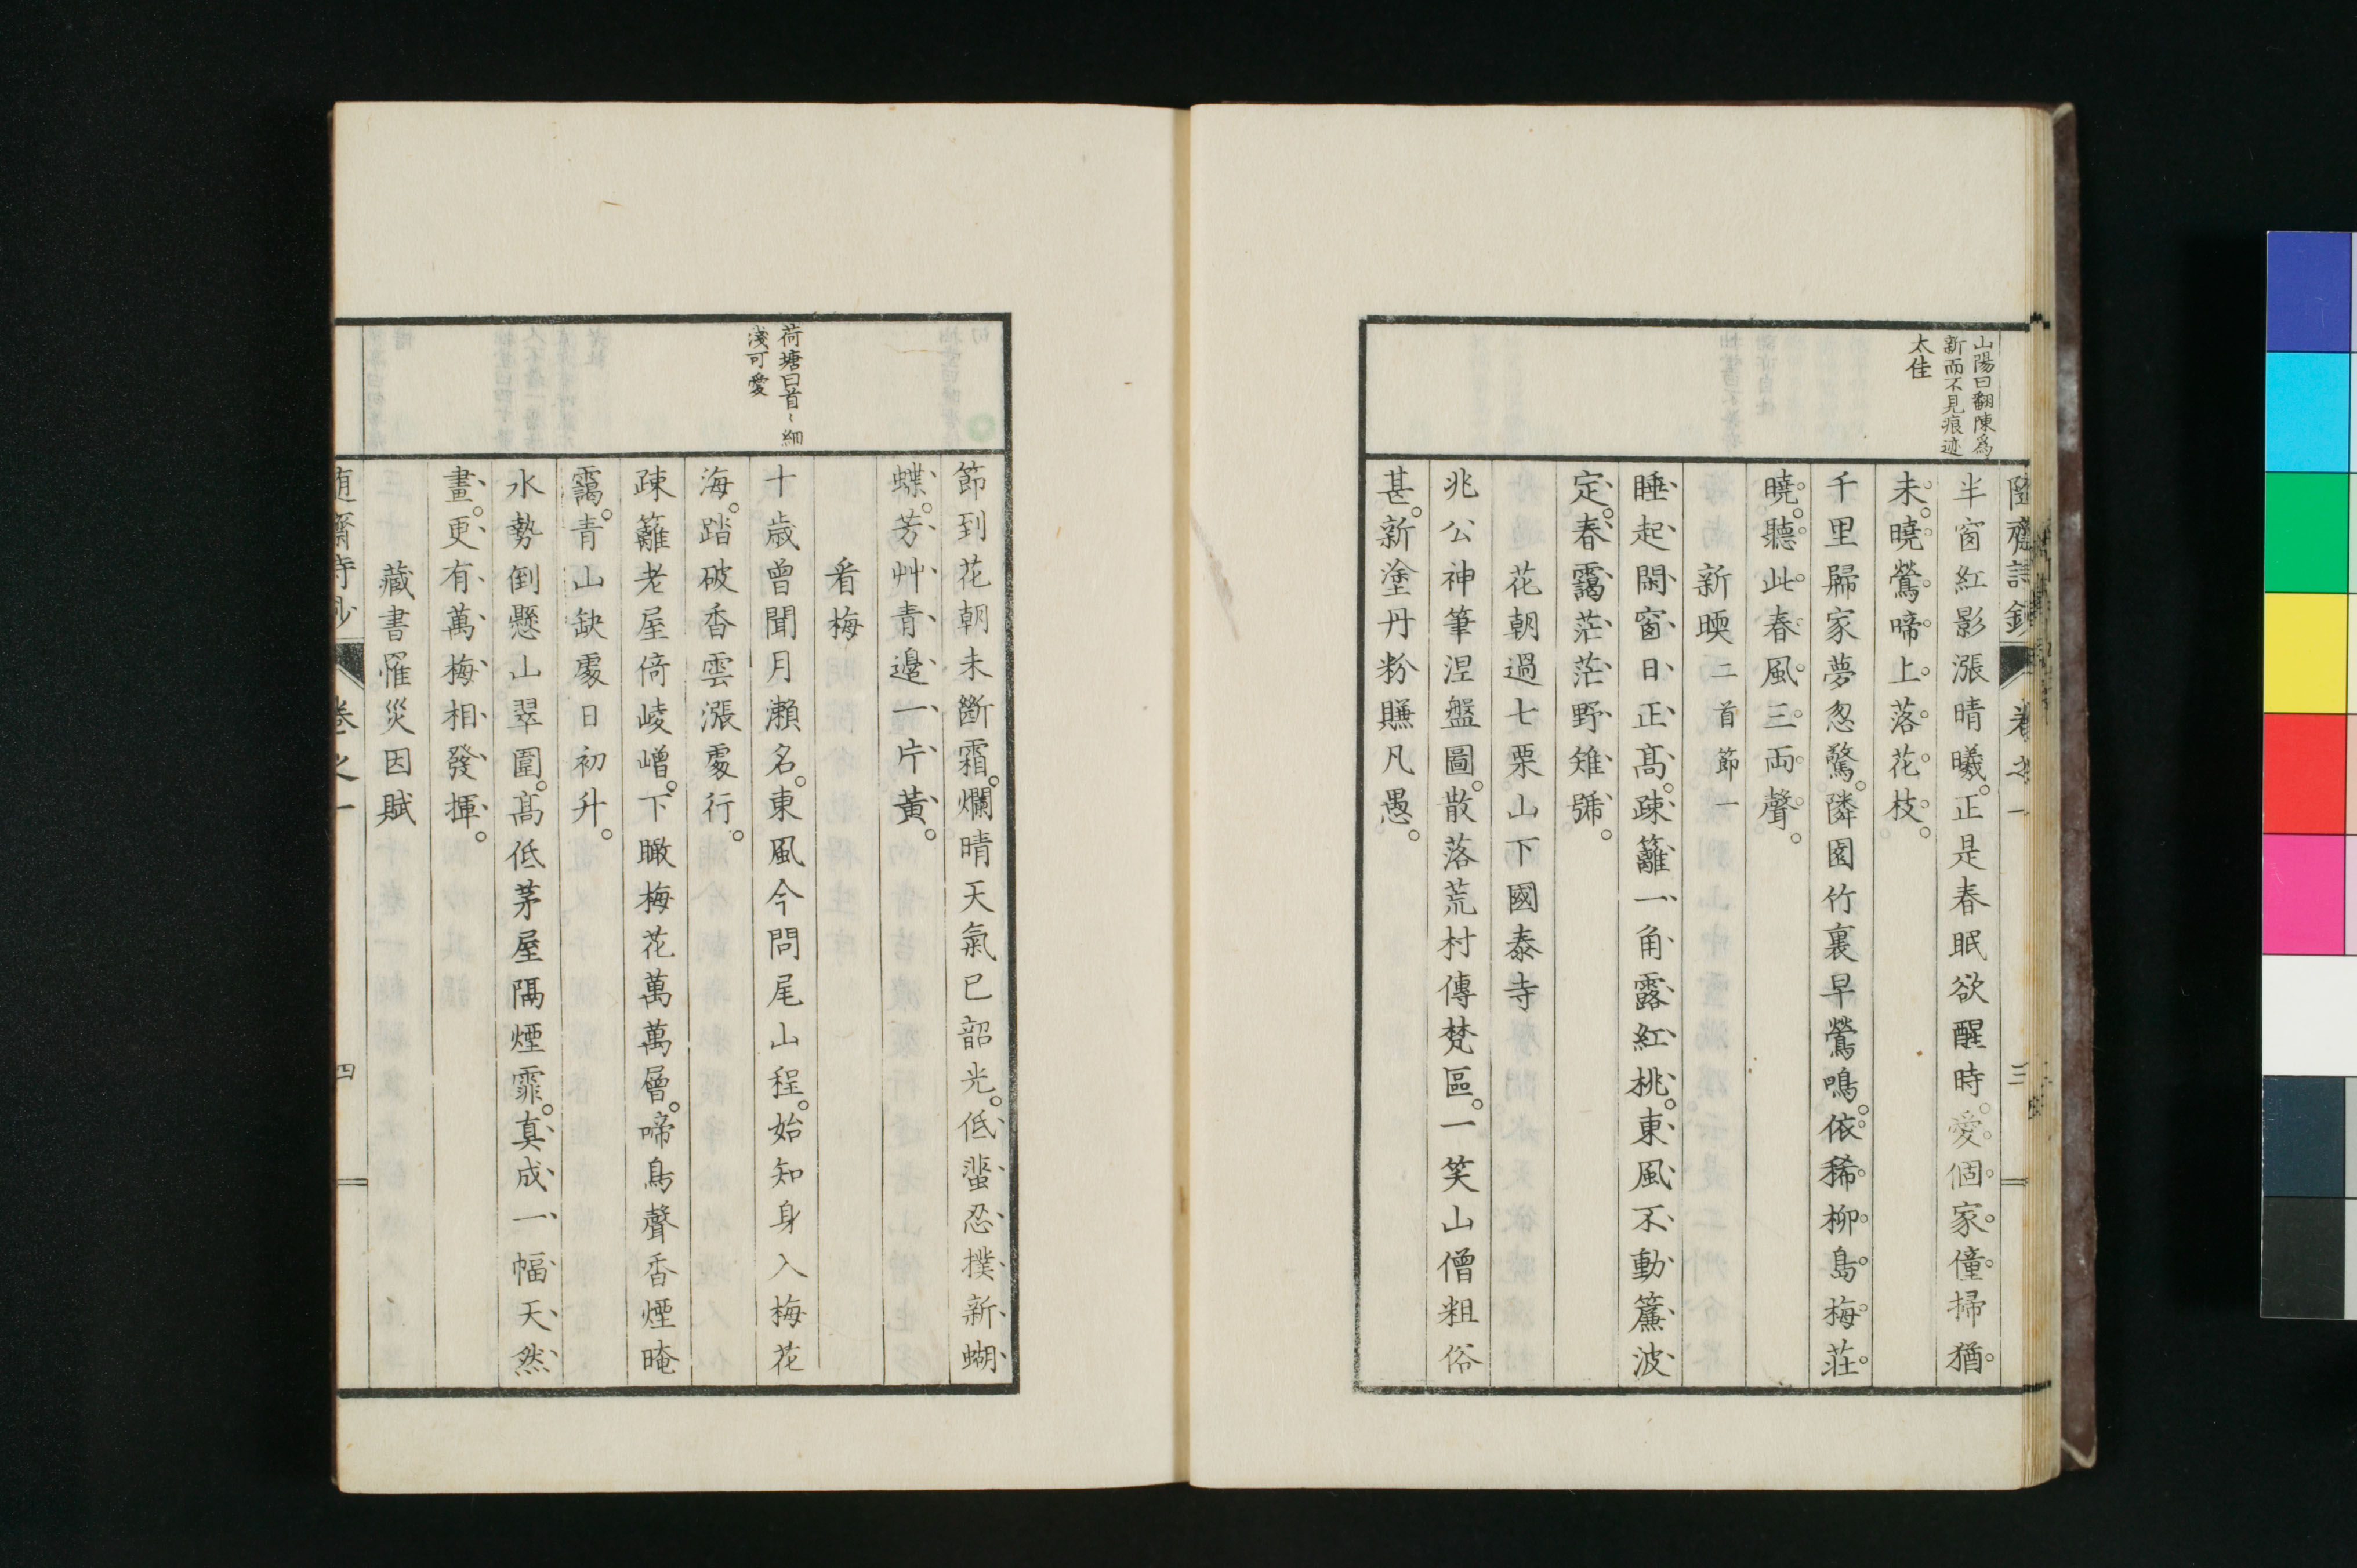 山陽曰翻陳爲
新而不見痕迹
太佳
半窗紅影漲晴曦。正是春眠欲醒時。愛個家僮掃猶
未。曉鶯啼上落花枝。
千里歸家夢忽驚。隣園竹裏早鶯鳴。依稀柳島梅莊
曉。聽此春風三兩聲。
新暎二首節一
睡起閑窗日正高。疎籬一角露紅桃。東風不動簾波
定。春靄茫茫野雉號。
花朝過七栗山下國泰寺
兆公神筆涅盤圖。散落荒村傳梵區。一笑山僧粗俗
甚。新塗丹粉賺凡愚。
卷之一
三
荷塘曰首〻細
淺可愛
節到花朝未斷霜。爛晴天氣已韶光。低蜚忍撲新蝴
蝶。芳艸青邊一片黃。
看梅
十歳曾聞月瀬名。東風今問尾山程。始知身入梅花
海。踏破香雲漲處行。
疎籬老屋倚崚嶒。下瞰梅花萬萬層。啼鳥聲香煙晻
靄。青山缺處日初升。
水勢倒懸山翠圍。高低茅屋隔煙霏。真成一幅天然
畫。更有萬梅相發揮。
藏書罹災因賦
卷之一
四